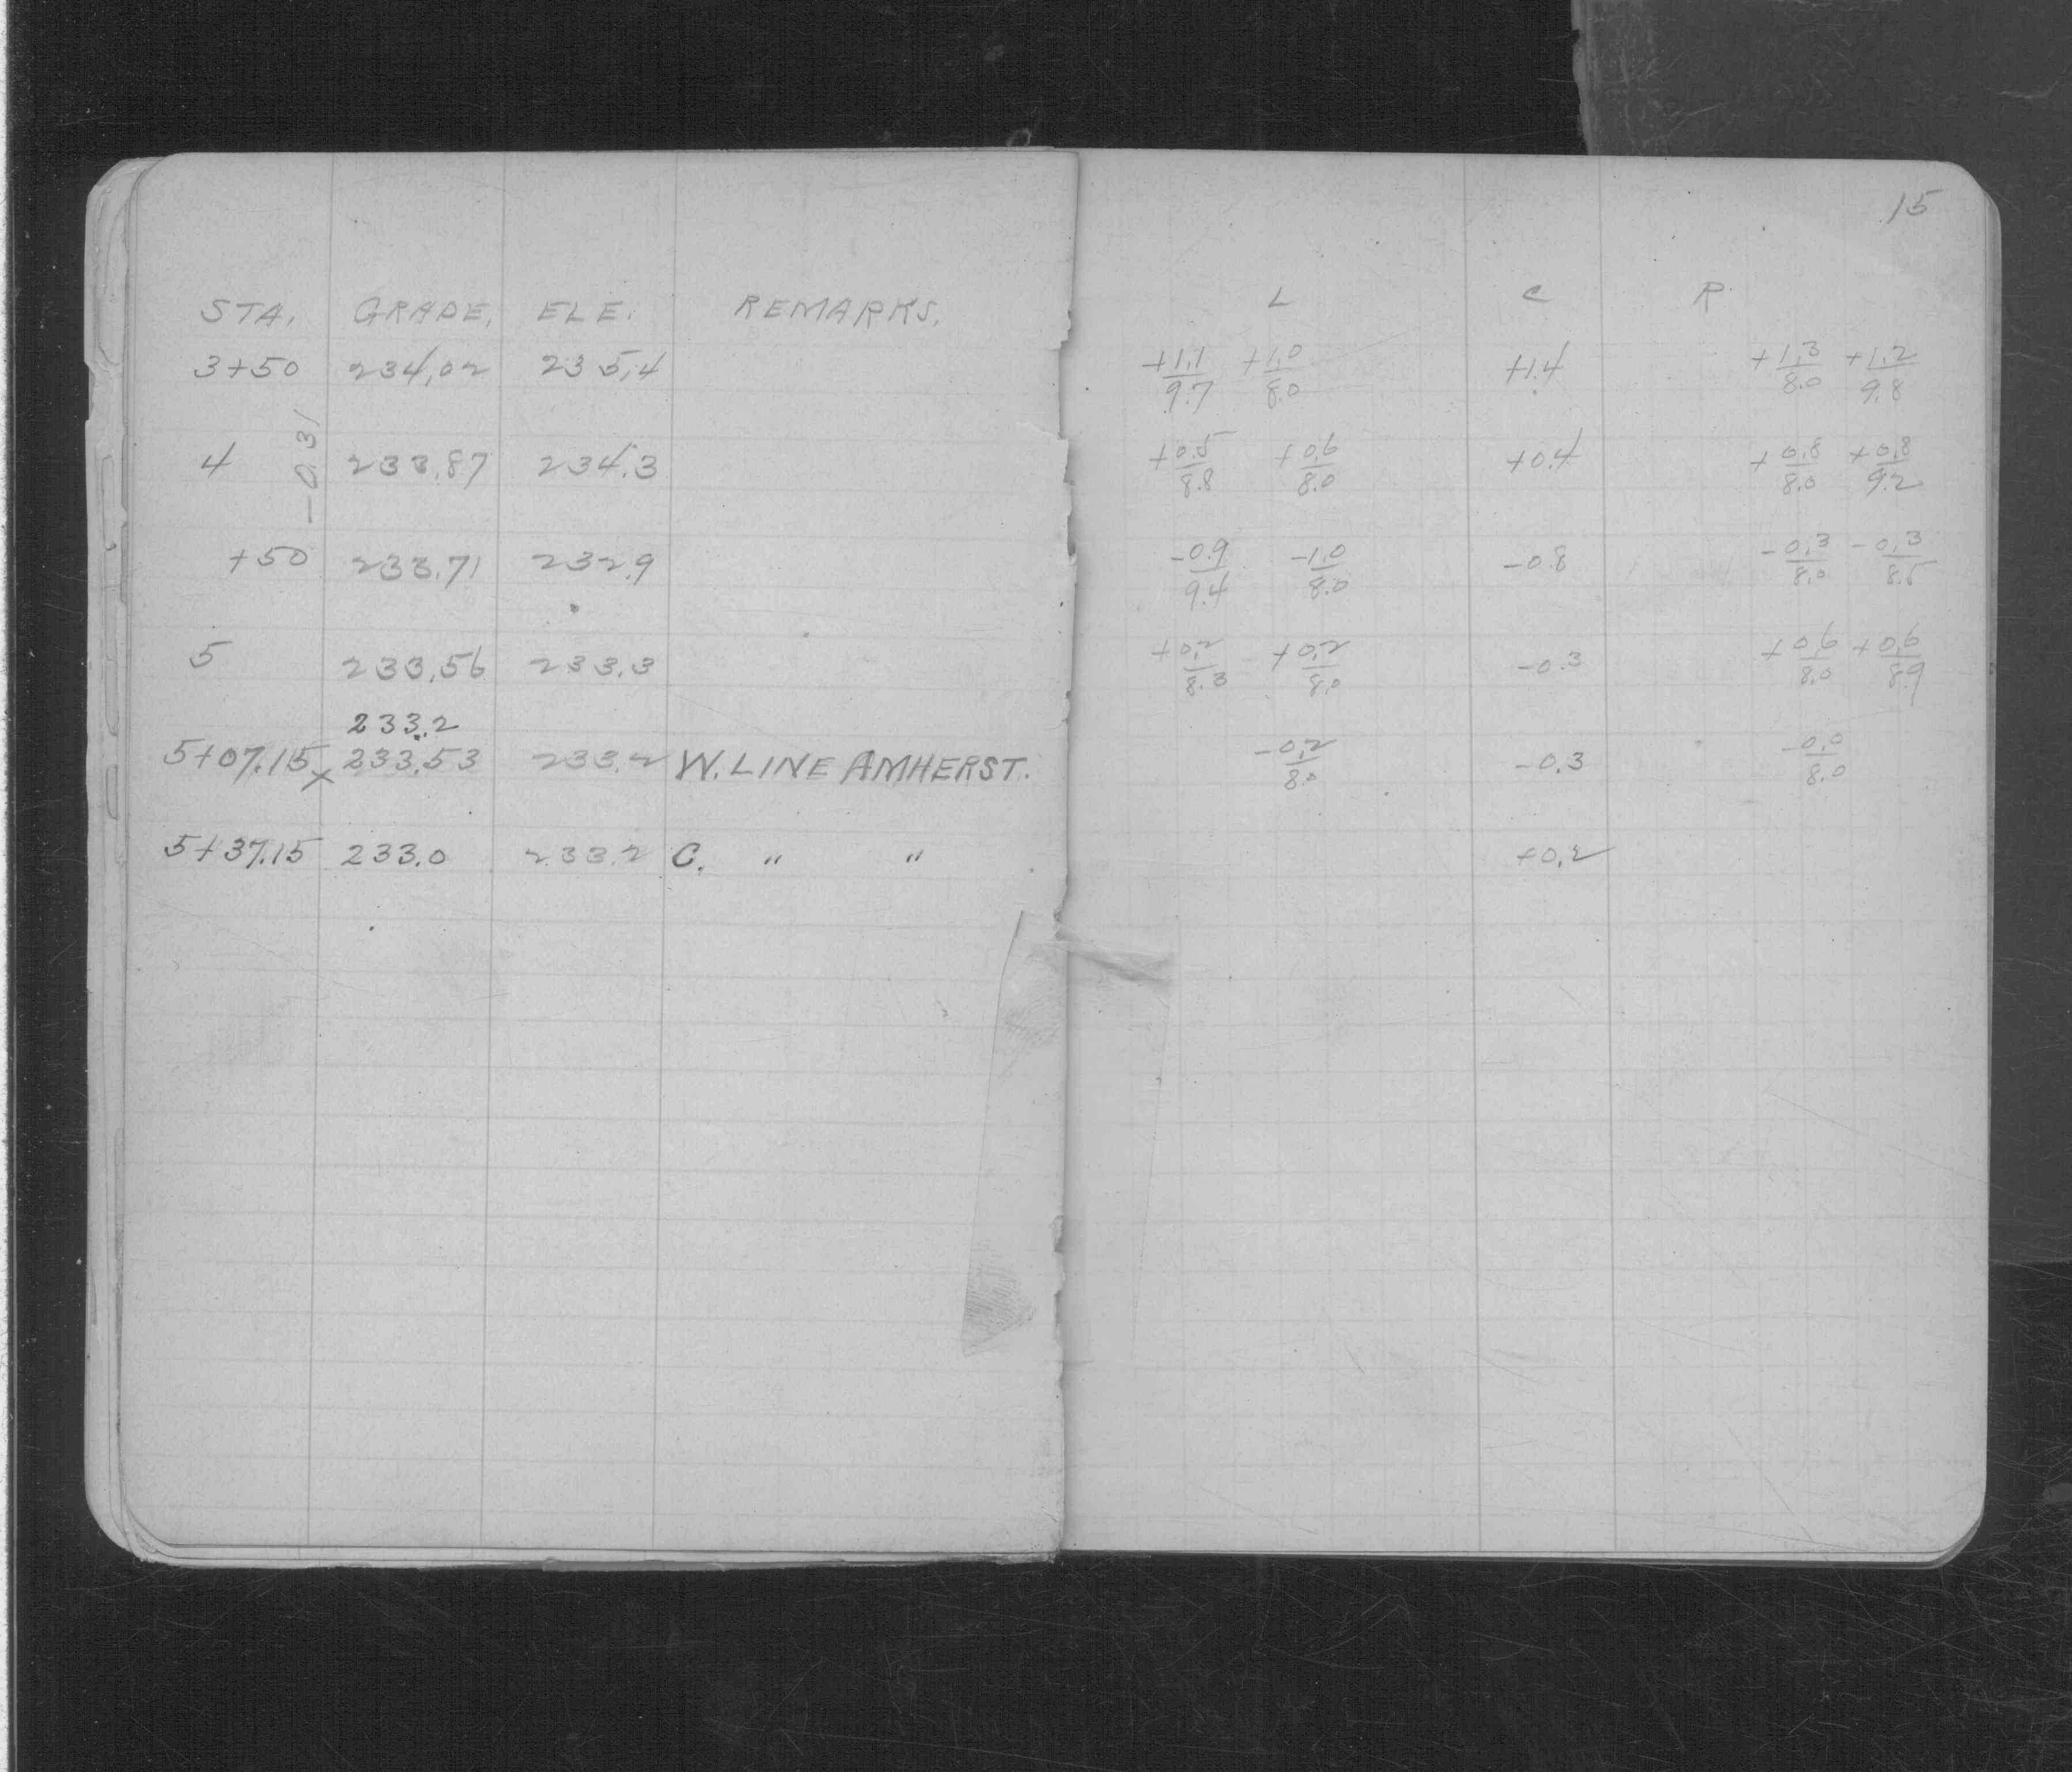 15
STA. GRADE. ELE. REMARKS. L C R
3+50 234.02 235.4 +1.1/9.7 +1.0/8.0 +1.4 +1.3/8.0 +1.2/9.8
-0.31
4 233.87 234.3 +0.5/8.8 +0.6/8.0 +0.4 +0.8/8.0 +0.8/9.2
+50 233.71 232.9 -0.9/9.4 -1.0/8.0 -0.8 -0.3/8.0 -0.3/8.5
5 233.56 233.3 +0.2/8.3 +0.2/8.0 -0.3 +0.6/8.0 +0.6/8.9
233.2
5+07.15 x 233.53 233.2 W. LINE AMHERST. -0.2/8.0 -0.3 -0.0/8.0
5+37.15 233.0 233.2 C. " " +0.2